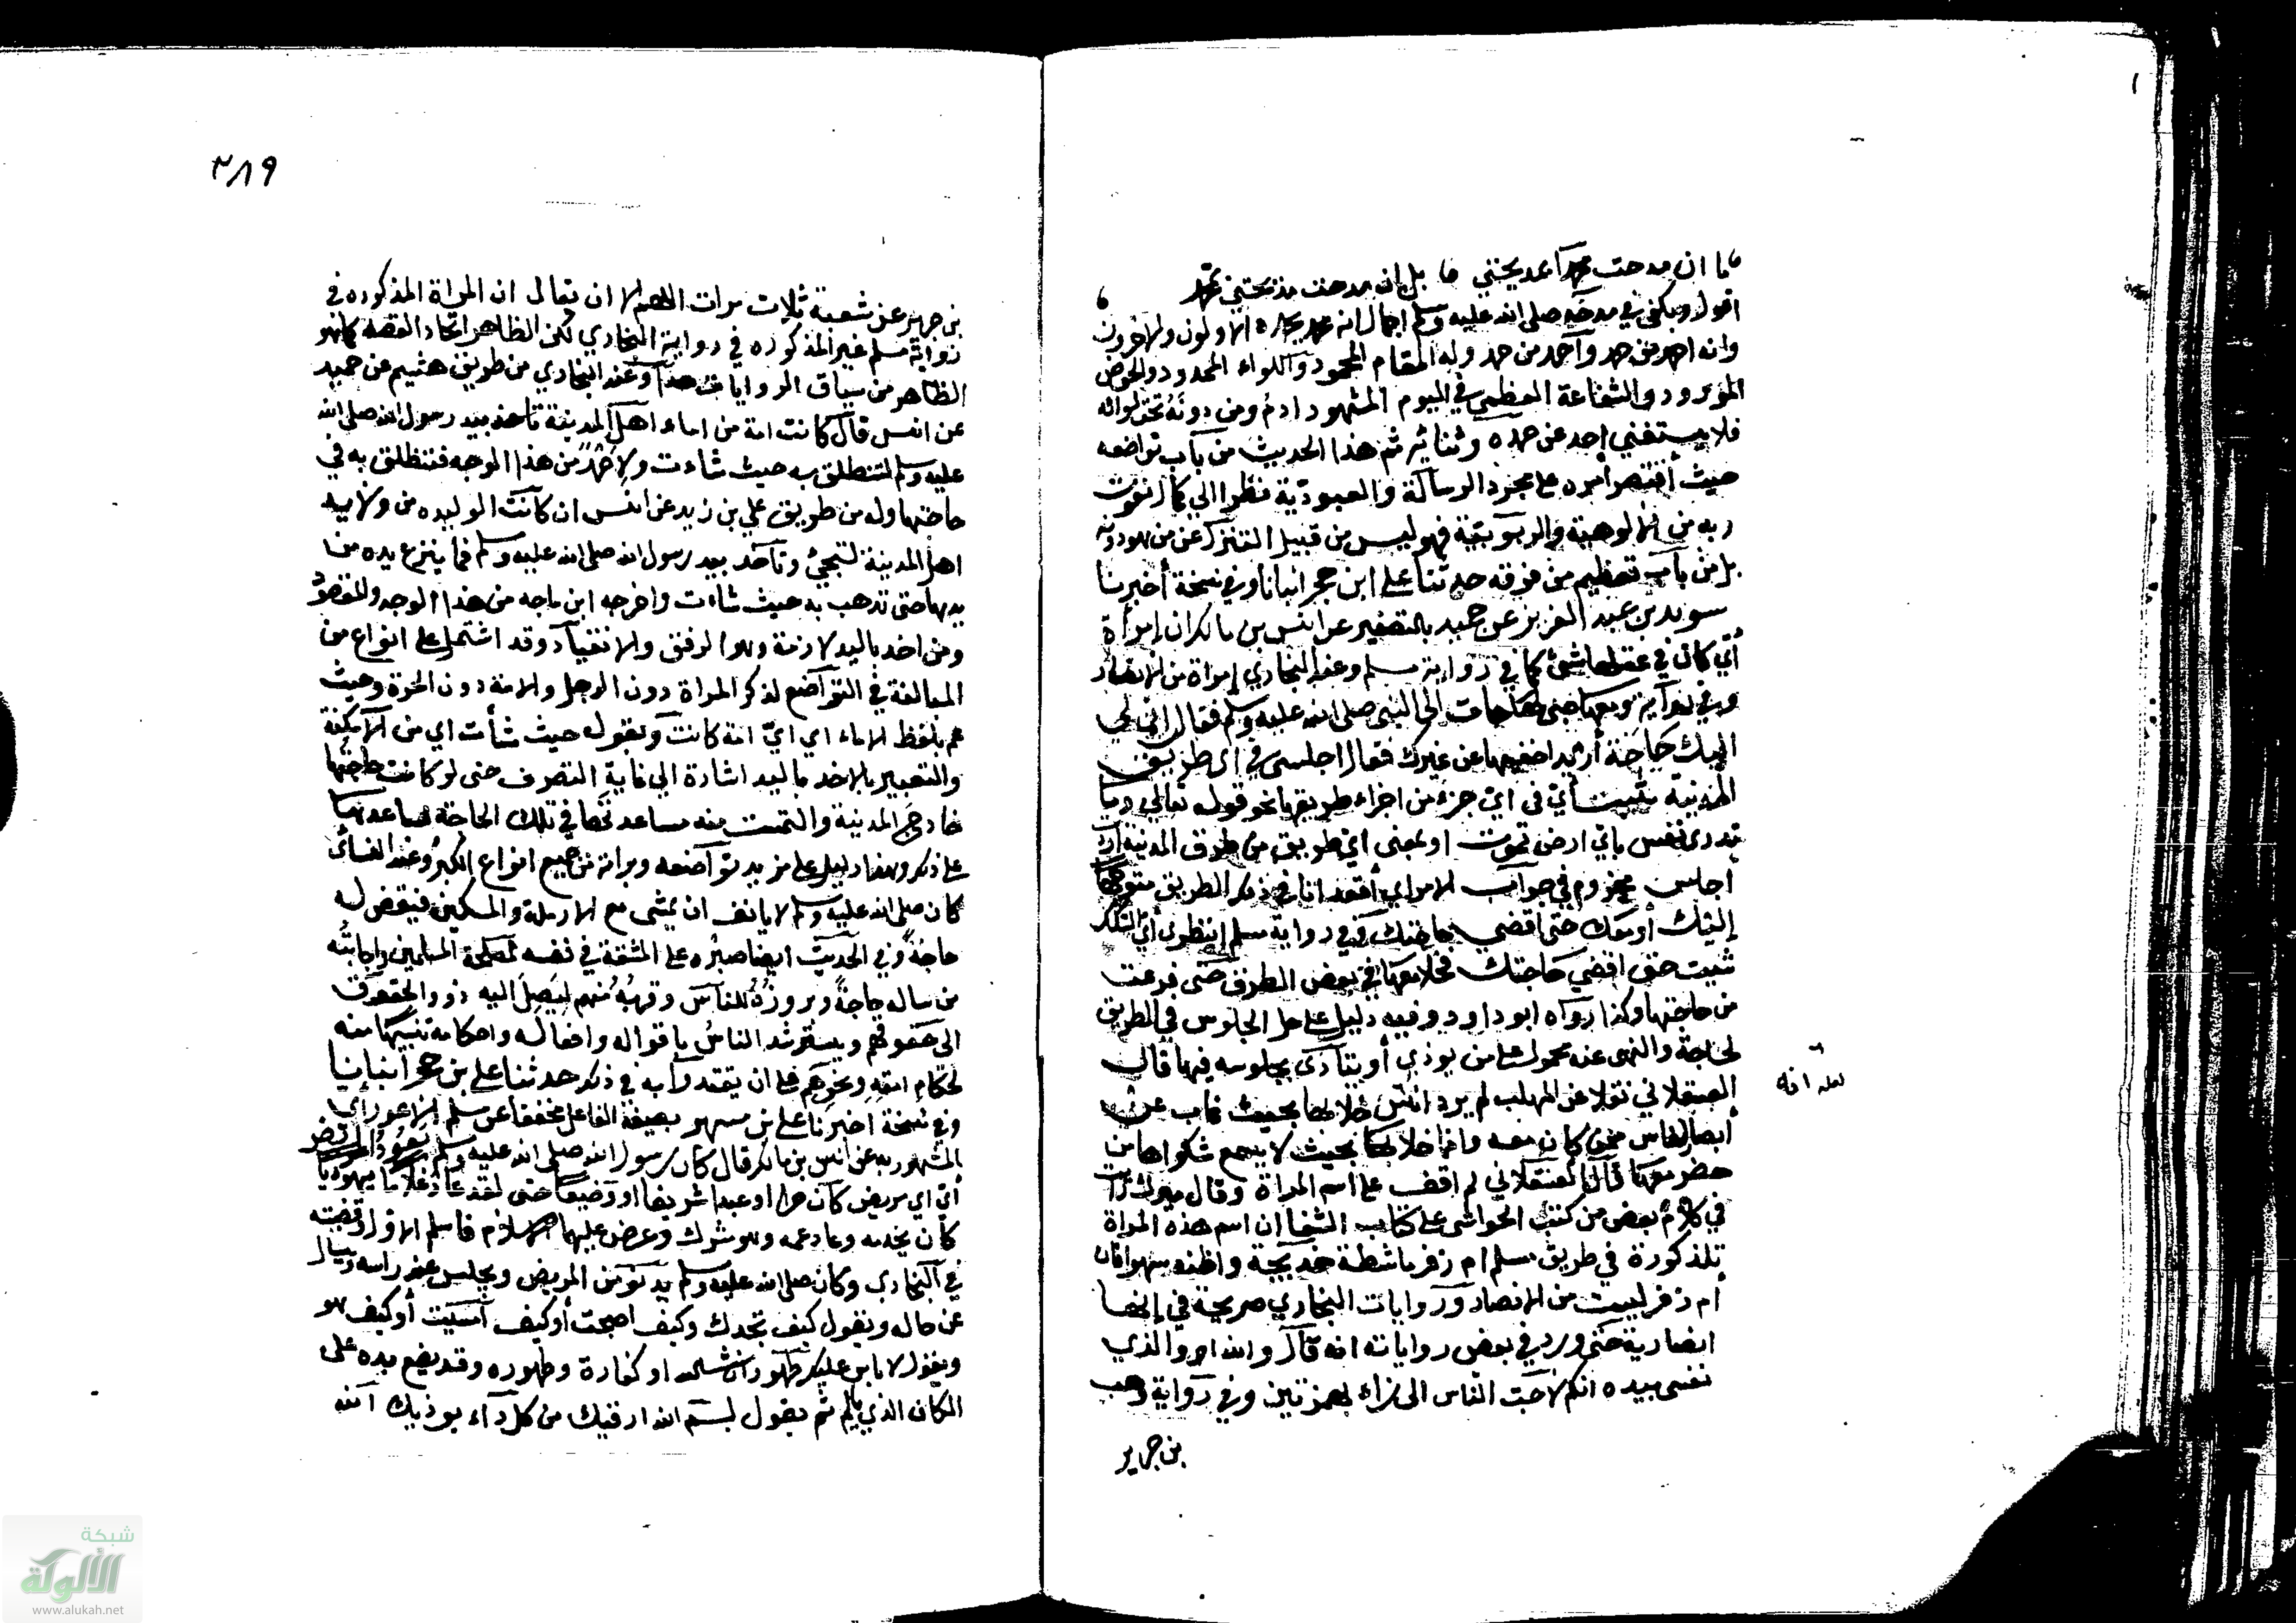 ما ان مدحت محمدا بمديحتي ما بل ان مدحت مديحتي بمحمد
اقول ويكفي في مدحه صلى الله عليه وسلم اجمالا انه محمد يحمده الاولون والاخرون
وانه احمد من حمد وأحمد من حمد وله المقام المحمود واللواء الممدود والحوض
المورود والشفاعة العظمى في اليوم المشهود ادم ومن دونه تحت لوائه
فلا يستغني احد عن حمده وثنائه ثم هذا الحديث من باب تواضعه
حيث اقتصر أمره على مجرد الرسالة والعبودية نظرا الى كمال نعوت
ربه من الالوهية والربوبية فهو ليس من قبيل التنزل عن من هو دونه
بل من باب تعظيم من فوقه حدثنا علي ابن حجر انبانا وفي نسخة أخبرنا
سويد بن عبد العزيز عن حميد بالتصغير عن انس بن مالك ان إمرأة
أي كان في عقلها شئ كما في رواية مسلم وعند البخاري إمرأة من الانصار
وفي رواية ومعها صبي لها جات الى النبي صلى الله عليه وسلم فقالت إن لي
اليك حاجة أريد اخفيها عن غيرك فقال اجلسي في اي طريق
المدينة شئت أي في اي جزء من اجزاء طريقها نحو قوله تعالى وما
تدري نفس باي ارض تموت او بمعنى اي طريق من طرق المدينة اردت
أجلس مجزوم في جواب الامر اي أقعد انا في ذلك الطريق متوجها
إليك أو معك حتى اقضي حاجتك وفي رواية مسلم إنظري أي السكك
شئت حتى اقضي حاجتك فخلا معها في بعض الطرق حتى فرغت
من حاجتها وكذا رواه ابو داود وفيه دليل على حل الجلوس في الطريق
لحاجة والنهي عنه محمول على من يوذي أو يتأذى بجلوسه فيها قال
العسقلاني نقلا عن المهلب لم يرد انس خلا بها بحيث غاب عن
أبصار الناس ممن كان معه وانما خلا بها بحيث لا يسمع شكواها من
حضر معها قال العسقلاني لم اقف على اسم المراة وقال ميرك رايت
في كلام بعض من كتب الحواشي على كتاب الشفا ان اسم هذه المراة
المذكورة في طريق مسلم ام زفر ماشطة خديجة واظنه سهوا فان
أم زفر ليست من الانصار وروايات البخاري صريحة في إنها
انصارية حتى ورد في بعض رواياته انه قال والله او والذي
نفسي بيده انكم لاحب الناس الى
وفي رواية وهب
بن جرير
لعله انه
٣٨٩
بن جرير عن شعبة ثلاث مرات اللهم الا ان يقال ان المراة المذكوره في
رواية مسلم غير المذكوره في رواية البخاري لكن الظاهر اتحاد القصه كما هو
الظاهر من سياق الروايات هذا وعند البخاري من طريق هشيم عن حميد
عن انس قال كانت امة من اماء اهل المدينة تاخذ بيد رسول الله صلى الله
عليه وسلم لتنطلق به حيث شاءت ولاحمد من هذا الوجه فتنطلق به في
حاجتها وله من طريق علي بن زيد عن انس ان كانت الوليده من ولايد
اهل المدينة لتجئ وتأخذ بيد رسول الله صلى الله عليه وسلم فما ينزع يده من
يدها حتى تذهب به حيث شاءت واخرجه ابن ماجه من هذا الوجه والمقصود
ومن اخذ باليد لازمة وهو الرفق والانقياد وقد اشتمل على انواع من
المبالغة في التواضع لذكر المراة دون الرجل والامة دون الحرة وحيث
عم بلفظ الاماء اي اي امة كانت وبقوله حيث شأت اي من الامكنة
والتعبير بالاخذ باليد اشارة الي غاية التصرف حتى لو كانت حاجتها
خارج المدينة والتمست منه مساعدتها في تلك الحاجة لساعدتها
على ذلك وهذا دليل على مزيد تواضعه وبراءته من جميع انواع الكبر وعند النسائي
كان صلى الله عليه وسلم لا يانف ان يمشي مع الارملة والمسكين فيقضي له
حاجة وفي الحديث ايضا صبره على المشقة في نفسه لمصلحة المسلمين واجابته
من ساله حاجة وبروزه للناس وقربه منهم ليصل اليه ذوو الحقوق
الى حقوقهم ويسترشد الناس باقواله وافعاله واحكامه تنبيها منه
لحكام امته ونحوهم على ان يقتدوا به في ذلك حدثنا علي بن حجر انبانا
وفي نسخة اخبرنا علي بن مسهر بصيغة الفاعل مخففا عن سلم الاعور اي
المشهور به عن انس بن مالك قال كان رسول الله صلى الله عليه وسلم يعود المرضى
أي اي مريض كان حرا او عبدا شريفا او وضيعا حتى لقد عاد غلاما يهوديا
كان يخدمه وعاد عمه وهو مشرك وعرض عليهما الاسلام فاسلم الاول وقصته
في البخاري وكان صلى الله عليه وسلم يدنو من المريض ويجلس عند راسه ويسال
عن حاله ويقول كيف تجدك وكيف اصبحت أو كيف أمسيت أو كيف هو
ويقول لا باس عليك طهور ان شاء الله او كفارة وطهوره وقد يضع يده على
المكان الذي يالم ثم يقول بسم الله ارقيك من كل داء يوذيك الله
شبكة
الألوكة
www.alukah.net